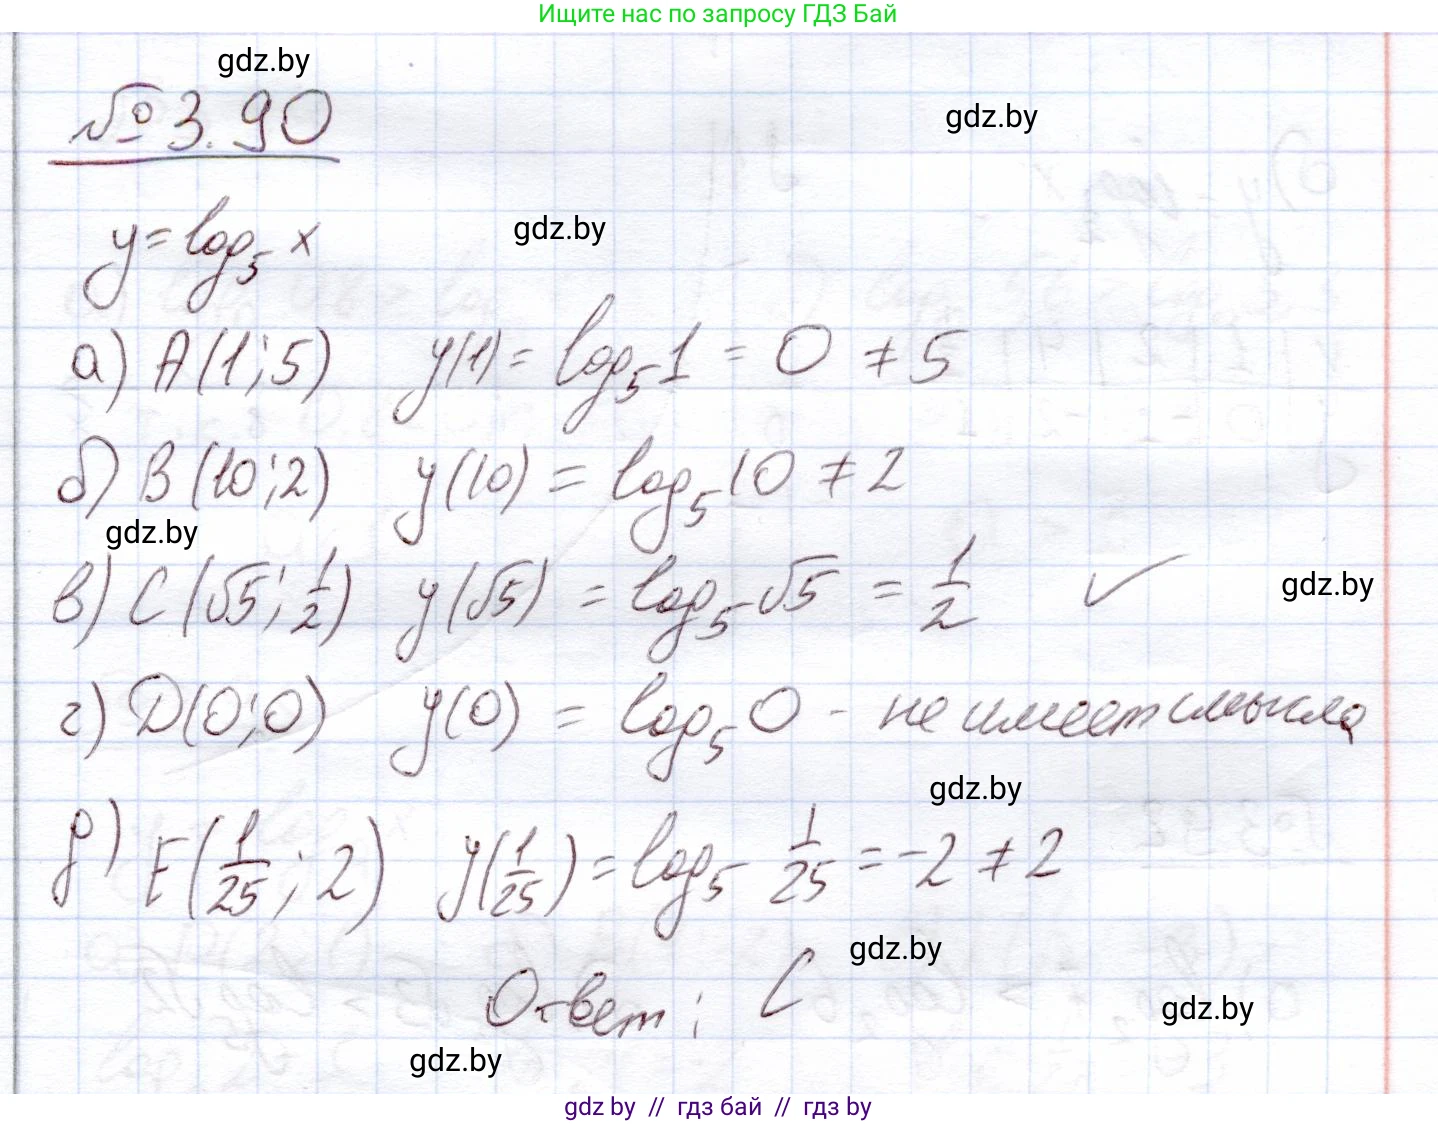 Ищите нас по запросу ГДЗ Бай
gdz.by
№ 3.90
gdz.by
y = log₅ x
gdz.by
а) A(1; 5) y(1) = log₅1 = 0 ≠ 5
б) B(10; 2) y(10) = log₅10 ≠ 2
gdz.by
в) C(√5; 1/2) y(√5) = log₅√5 = 1/2 ✓
gdz.by
г) D(0; 0) y(0) = log₅0 - не имеет смысла
gdz.by
д) E(1/25; 2) y(1/25) = log₅ 1/25 = -2 ≠ 2
gdz.by
Ответ: C
gdz.by
gdz.by
gdz by // гдз бай // гдз by